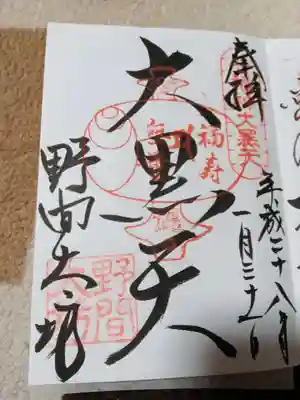 奉拝
大黒天
平成二十八年
一月三十一日
大黒天
福寿
野間大坊
野間
大坊